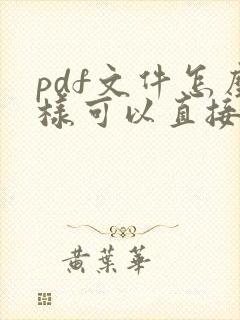 pdf文件怎麼
樣可以直接
黃葉華